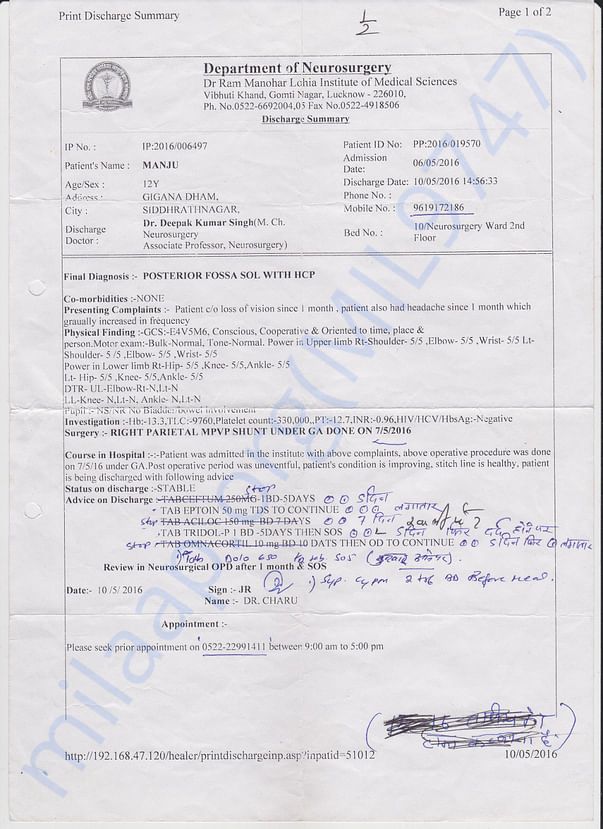 Print Discharge Summary
1/2
Page 1 of 2
Department of Neurosurgery
Dr Ram Manohar Lohia Institute of Medical Sciences
Vibhuti Khand, Gomti Nagar, Lucknow - 226010,
Ph. No.0522-6692004,05 Fax No.0522-4918506
Discharge Summary
IP No. : IP:2016/006497 Patient ID No: PP:2016/019570
Patient's Name : MANJU Admission Date: 06/05/2016
Age/Sex : 12Y Discharge Date: 10/05/2016 14:56:33
Address : GIGANA DHAM, Phone No. :
City : SIDDHRATHNAGAR, Mobile No. : 9619172186
Discharge Doctor : Dr. Deepak Kumar Singh(M. Ch. Neurosurgery Associate Professor, Neurosurgery) Bed No. : 10/Neurosurgery Ward 2nd Floor
Final Diagnosis :- POSTERIOR FOSSA SOL WITH HCP
Co-morbidities :-NONE
Presenting Complaints :- Patient c/o loss of vision since 1 month , patient also had headache since 1 month which
graually increased in frequency
Physical Finding :-GCS:-E4V5M6, Conscious, Cooperative & Oriented to time, place &
person.Motor exam:-Bulk-Normal, Tone-Normal. Power in Upper limb Rt-Shoulder- 5/5 ,Elbow- 5/5 ,Wrist- 5/5 Lt-
Shoulder- 5 /5 ,Elbow- 5/5 ,Wrist- 5/5
Power in Lower limb Rt-Hip- 5/5 ,Knee- 5/5,Ankle- 5/5
Lt- Hip- 5/5 ,Knee- 5/5,Ankle- 5/5
DTR- UL-Elbow-Rt-N,Lt-N
LL-Knee- N,Lt-N, Ankle- N,Lt-N
Pupil :- NS/NR No Bladder/bowel involvement
Investigation :-Hb:-13.3,TLC:-9760,Platelet count:-330,000,,PT:-12.7,INR:-0.96,HIV/HCV/HbsAg:-Negative
Surgery :- RIGHT PARIETAL MPVP SHUNT UNDER GA DONE ON 7/5/2016
Course in Hospital :-:-Patient was admitted in the institute with above complaints, above operative procedure was done
on 7/5/16 under GA.Post operative period was uneventful, patient's condition is improving, stitch line is healthy, patient
is being discharged with following advice
Status on discharge :-STABLE stop
Advice on Discharge :-TABCEFTUM 250MG-1BD-5DAYS 5 दिन
TAB EPTOIN 50 mg TDS TO CONTINUE लगातार
stop TAB ACILOC 150 mg BD 7 DAYS 7 दिन
TAB TRIDOL-P 1 BD -5DAYS THEN SOS 5 दिन फिर दर्द होने पर
stop TAB OMNACORTIL 10 mg BD 10 DATS THEN OD TO CONTINUE दिन फिर लगातार
Tab Dolo 650 SOS
Review in Neurosurgical OPD after 1 month & SOS
Syp. BD Before meal.
Date:- 10 /5/ 2016 Sign :- JR
Name :- DR. CHARU
Appointment :-
Please seek prior appointment on 0522-22991411 between 9:00 am to 5:00 pm
http://192.168.47.120/healer/printdischargeinp.asp?inpatid=51012 10/05/2016
milaap.org(MIL99747)